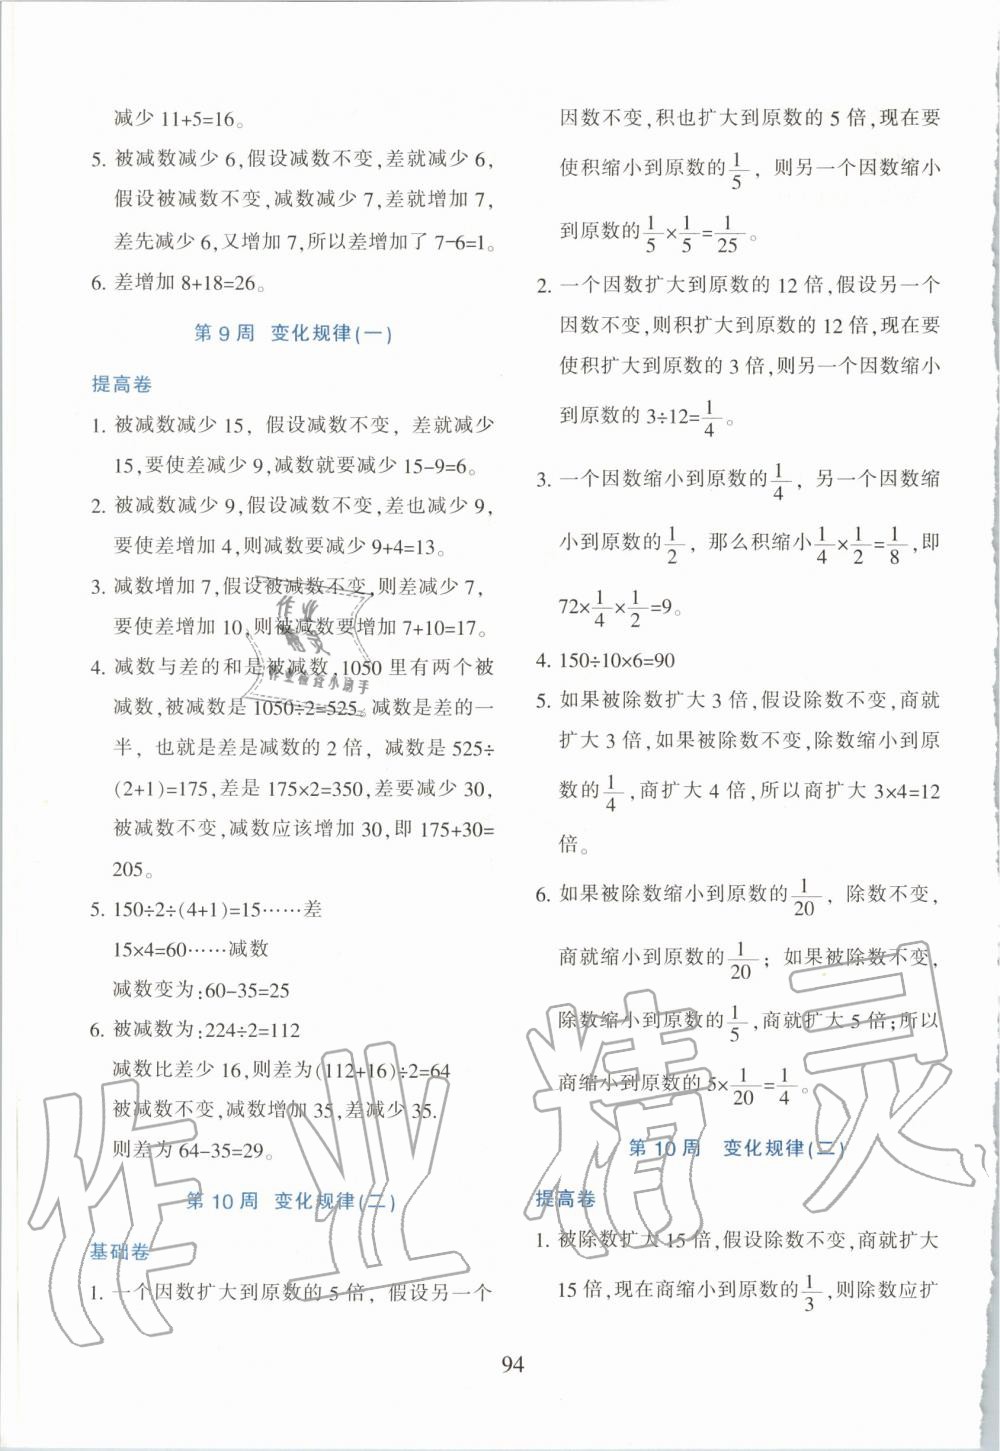 减少 11+5=16。
5. 被减数减少 6,假设减数不变,差就减少 6,
假设被减数不变,减数减少 7,差就增加 7,
差先减少 6,又增加 7,所以差增加了 7-6=1。
6. 差增加 8+18=26。
第 9 周 变化规律(一)
提高卷
1. 被减数减少 15, 假设减数不变, 差就减少
15,要使差减少 9,减数就要减少 15-9=6。
2. 被减数减少 9,假设减数不变,差也减少 9,
要使差增加 4,则减数要减少 9+4=13。
3. 减数增加 7,假设被减数不变,则差减少 7,
要使差增加 10,则被减数要增加 7+10=17。
4. 减数与差的和是被减数,1050 里有两个被
减数,被减数是 1050÷2=525。减数是差的一
半, 也就是差是减数的 2 倍, 减数是 525÷
(2+1)=175,差是 175×2=350,差要减少 30,
被减数不变,减数应该增加 30,即 175+30=
205。
5. 150÷2÷(4+1)=15……差
15×4=60……减数
减数变为:60-35=25
6. 被减数为:224÷2=112
减数比差少 16,则差为(112+16)÷2=64
被减数不变,减数增加 35,差减少 35.
则差为 64-35=29。
第 10 周 变化规律(二)
基础卷
1. 一个因数扩大到原数的 5 倍, 假设另一个
因数不变,积也扩大到原数的 5 倍,现在要
使积缩小到原数的 1/5, 则另一个因数缩小
到原数的 1/5×1/5=1/25。
2. 一个因数扩大到原数的 12 倍,假设另一个
因数不变,则积扩大到原数的 12 倍,现在要
使积扩大到原数的 3 倍,则另一个因数缩小
到原数的 3÷12=1/4。
3. 一个因数缩小到原数的 1/4, 另一个因数缩
小到原数的 1/2, 那么积缩小 1/4×1/2=1/8,即
72×1/4×1/2=9。
4. 150÷10×6=90
5. 如果被除数扩大 3 倍,假设除数不变,商就
扩大 3 倍,如果被除数不变,除数缩小到原
数的 1/4,商扩大 4 倍,所以商扩大 3×4=12
倍。
6. 如果被除数缩小到原数的 1/20, 除数不变,
商就缩小到原数的 1/20; 如果被除数不变,
除数缩小到原数的 1/5,商就扩大 5 倍;所以
商缩小到原数的 5×1/20=1/4。
第 10 周 变化规律(二)
提高卷
1. 被除数扩大 15 倍,假设除数不变,商就扩大
15 倍,现在商缩小到原数的 1/3,则除数应扩
94
作业精灵
作业
精灵
作业检查小助手